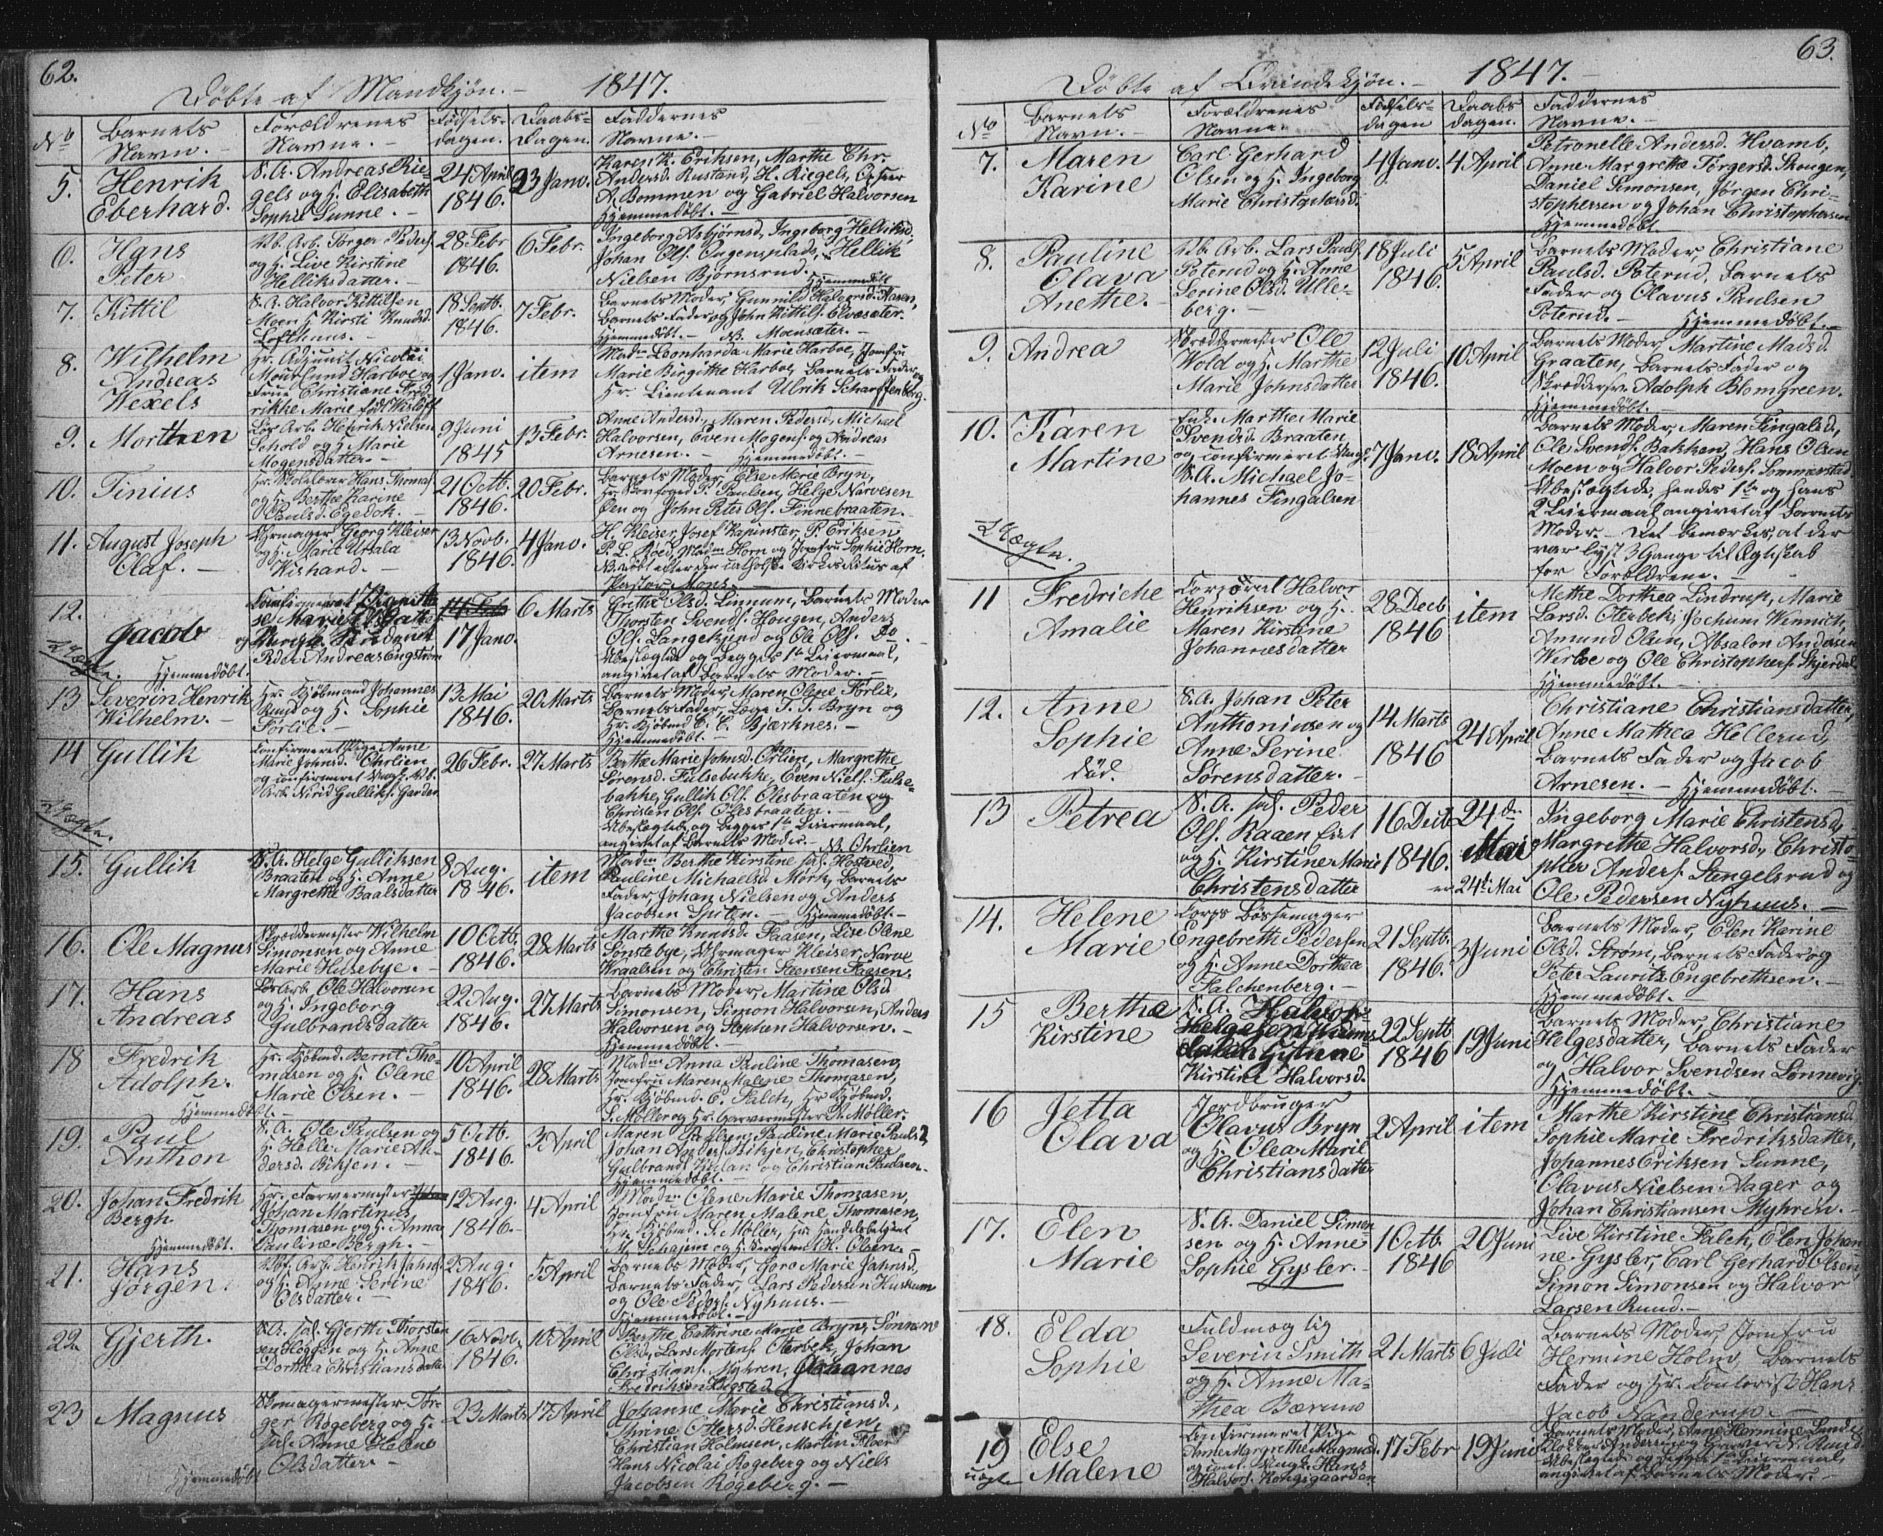 62.
Døbte af Mandkjøn. - 1847.
No
Barnets Navn. -
Forældrenes Navne. -
Fødsels-dagen. -
Daabs-Dagen.
Faddernes Navne. -
5.
Henrik
Eberhard.
S. A. Andreas Rie-
gels og H. Elisabeth
Sophie Sunne. -
24 April
1846.
23 Janv.
Karen K. Eriksen, Marthe Chr.
Andersd. Rustand, H. Riegels, Opsør
A. Bommen og Gabriel Halvorsen
Hjemmedøbt. -
6.
Hans
Peter
Arb. Törger Peders.
og H. Live Kirstine
Helliksdatter. -
28 Febr
1846.
6 Febr.
Ingeborg Asbjørnsd, Ingeborg Helliksd,
Johan Ols. Eugensplads, Hellik
Nielsen Bjørnsrud.
Hjemmedöbt
7.
Kittil
S. A. Halvor Kittilsen
Moen H. Kirsti Knudsd.
Lofthuus. -
18 Septb.
1846.
7 Febr.
Barnets Moder, Gunnild Halvorsd. Aasen,
Barnets Fader og John Kittils. Elvesæter.
Hjemmedöbt. - NB. Moensæter. -
8.
Wilhelm
Andreas
Wexels
Hr. Adjunct Nicolai
Mourlund Harboe og
Frue Christiane Fred-
rikke Marie födt Wisløff
1 Janv.
item
Madm Leonharda Marie Harboe, Jomfru
Marie Birgithe Harboe, Barnets Fader og
Hr. Lieutenant Ulrik Scharffenberg.
9.
Morthen
Lös Arb. Henrik Nielsen
Schold og H. Marie
Mogensdatter. -
9 Juni
1845
13 Febr.
Anne Andersd., Maren Pedersd, Michael
Halvorsen, Even Mogens. og Andreas
Arnesen. - Hjemmedöbt. -
10.
Tinius
Hr. Skolelærer Hans Thomas
og H. Berthe Karine
Poulsd. Egedok. -
21 Octb.
1846.
20 Febr.
Barnets Moder, Else Marie Bryn,
P. Paulsen, Helge Narvesen
Øen og John Peter Ols. Finnebraaten. -
11.
August Joseph
Olaf. -
Uhrmager Georg Kleiser
og H. Marie Ursala
Wishard. -
13 Novb.
1846.
4 Janv.
H. Kleiser, Josef Kapinster, P. Eriksen
P. L. Roed, Madm Horn og Jomfru Sophie Horn.
NB. döbt efter den catholske Kirkes Ritus af
Pastor Mons. -
12.
Jacob
2 Uægte.
Hjemmedöbt.
Confirmeret
Peder Andreas Engstrøm
17 Janv.
6 Marts
Grethe Olsd. Linnum, Barnets Moder
Thorsten Svends. Hougen, Anders
Ols. Langekjend og Ole Ols. do.
Ubeslægtede og begges 1te Leiermaal,
angivet af Barnets Moder. -
13
Severin Henrik
Wilhelm. -
Hr. Kjöbmand Johannes
Ruud og H. Sophie
Förlie. -
13 Mai
1846.
20 Marts
Barnets Moder, Maren Olene Förlie,
Barnets Fader, Læge T. T. Bryn og
Hr. Kjöbmd C. C. Bjærknes. -
Hjemmedöbt. -
14
Gullik
2 Uægte.
Confirmeret Pige Anne
Marie Johnsd. Ohrlien
og confirmeret Ungk.
Arb. Nirid Gulliks. Garden
26 Febr.
27 Marts
Berthe Marie Johnsd. Orlien, Margrethe
Sörensd. Fulsebakke, Even Niels. Fulse-
bakke, Gullik Ols. Olesbraaten og
Christen Ols. Olesbraaten. -
Ubeslægtede og begges 1te Leiermaal,
angivet af Barnets Moder. - NB Ohrlien
15.
Gullik
S. A. Helge Gulliksen
Braaten og H. Anne
Margrethe Baalsdatter
8 Aug.
1846.
item
Madm Berthe Kirstine sal. Hostved,
Pauline Michaelsd. Mørk, Barnets
Fader, Johan Nielsen og Anders
Jacobsen Spiten. - Hjemmedöbt. -
16.
Ole Magnus
Skræddermester Wilhelm
Simonsen og Anne
Marie Husebye. -
10 Octb.
1846.
28 Marts
Marthe Knudsd. Faasen, Lise Olene
Sonstebye, Uhrmager Kleiser, Narve
Kraalsen og Christen Steensen Faasen.
17.
Hans
Andreas
Lös Arb. Ole Halvorsen
og H. Ingeborg
Gulbrandsdatter
22 Aug.
1846.
27 Marts
Barnets Moder, Martine Olsd
Simonsen, Simon Halvorsen, Anders
Halvorsen og Stephen Halvorsen. -
Hjemmedöbt. -
18
Fredrik
Adolph.
Hjemmedöbt. -
Hr. Kjöbmd. Bernt Tho-
masen og H. Olene
Marie Olsen. -
10 April
1846.
28 Marts
Madm Anna Pauline Thomasen,
Jomfru Maren Malene Thomasen,
Hr. Kjöbmd. C. Falch, Hr Kjöbmd.
S. Möller og Hr. Garvermester P. Möller.
19.
Paul
Anthon
S. A. Ole Paulsen og
H. Helle Marie An-
dersd. Biksjen. -
5 Octb.
1846.
3 April
Maren Paulsen, Pauline Marie Paulsd,
Johan Anders. Biksjen, Christopher
Gulbrands. og Christian Paulsen.
Hjemmedöbt. -
20.
Johan Fredrik
Bergh
Hjemmedöbt.
Hr. Farvermester
Johan Martinus
Thomasen og H. Anna
Pauline Bergh. -
12 Aug.
1846. -
4 April
Madm Olene Marie Thomasen,
Jomfru Maren Malene Thomasen,
Hr. Kjöbmd. S. Möller, Hr. Handelsbetjent
M. Schajem og H. Bergsemd H. Olsen. -
21.
Hans
Jörgen.
Arb. Henrik Jahns.
og H. Anne Serine
Olsdatter. -
2 Aug.
1846.
5 April
Barnets Moder, Goro Marie Jahnsd,
Barnets Fader, Lars Pedersen Huskum
og Ole Peders. Nyhuus. -
Hjemmedöbt. -
22
Gjerth.
S. A. sal. Gjerth Thorsten
sen Hogsen og H. Anne
Dorthea Christiansdatter
16 Novb.
1846.
10 April
Berthe Cathrine Marie Bryn, Sönneve
Olsd, Lars Myrtens. Oterbek, Johan
Christians. Myhren, Johannes
Fredriksen Bogstad
23
Magnus
Hjemmedöbt
Skomagermester Tör-
ger Rogeberg og H.
sal. Anne Helene
Olsdatter. -
23 Marts
17 April
Johanne Marie Christiansd,
Thrine Ottersd. Henschien,
Christian Holmsen, Martin Floer
Hans Nicolai Rogeberg og Niels
Jacobsen Rogeberg. -
63.
Döbte af Qvindekjön. - 1847. -
No
Barnets Navn. -
Forældrenes Navne. -
Födsels-dagen
Daabs dagen.
Faddernes Navne. -
7.
Maren
Karine
Carl Gerhard
Olsen og H. Ingeborg
Marie Christophersd.
4 Janv.
4 April
Petronelle Andersd. Hvamb,
Anne Margrethe Törgersd. Skougen,
Daniel Simonsen, Jörgen Chri-
stophersen og Johan Christophersen
Hjemmedöbt. -
8.
Pauline
Olava
Anethe. -
Arb. Lars Pauls.
Poterud og H. Anne
Serine Olsd. Ulle-
berg. -
18 Juli
1846.
5 April
Barnets Moder, Christiane
Paulsd. Poterud, Barnets
Fader og Olavus Paulsen
Poterud. - Hjemmedöbt. -
9.
Andrea
Skræddermester Ole
Wold og H. Marthe
Marie Johnsdatter
12 Juli
1846.
10 April
Barnets Moder, Martine Madsd.
Graaten, Barnets Fader og
Skræddersv. Adolph Blomgreen.
Hjemmedöbt. -
10.
Karen
Martine
2 Uægte.
Enke Marthe Marie
Svendsd. Braaten
og confirmeret Ungk.
S. A. Michael Jo-
hannes Fingalsen
7 Janv.
18 April
Barnets Moder, Maren Fingalsd,
Ole Svends. Bakken, Hans Olsen
Moen og Halvor Peders. Sommerstad
Ubeslægtede, hendes 1te og hans
2 Leiermaal angivet af Barnets
Moder. - Det bemærkes, at der
var lyst 3 Gange til Ægteskab
for Forældrene. -
11
Fredriche
Amalie
Corporal Halvor
Henriksen og H.
Maren Kirstine
Johannesdatter
28 Decb
1846
item
Methe Dorthea Lindrup, Marie
Larsd. Oterbek, Jochum Winnich,
Amund Olsen, Absalon Andersen
Werloe og Ole Christophers. Skjerdal
Hjemmedöbt. -
12.
Anne
Sophie
död.
S. A. Johan Peter
Anthoniusen og
Anne Serine
Sörensdatter. -
14 Marts
1846
24 April
Christiane Christiansdatter,
Anne Mathea Hellerud,
Barnets Fader og Jacob
Arnesen. - Hjemmedöbt. -
13
Petrea
S. A. sal. Peder
Ols. Raaen
og H. Kirstine Marie
Christensdatter
16 Decb
1846.
24de
Mai
24de Mai
Ingeborg Marie Christensd,
Margrethe Halvorsd, Christo-
pher Anders. Stengelsrud og
Ole Pedersen Nyhuus. -
14.
Helene
Marie
Corps Bössemager
Engebreth Pedersen
og H. Anne Dorthea
Falchenberg. -
21 Septb.
1846.
3 Juni
Barnets Moder, Elen Karine
Olsd. Ström, Barnets Fader og
Peter Lauritz Engebrethsen. -
Hjemmedöbt. -
15
Berthe
Kirstine
S. A. Halvor
Helgesen
Kirstine Halvorsd.
22 Septb
1846
19 Juni
Barnets Moder, Christiane
Helgesdatter, Barnets Fader
og Halvor Svendsen Lonnevig
Hjemmedöbt. -
16
Jetta
Olava
Jordbruger
Olavus Bryn
og H. Olea Marie
Christiansdatter
2 April
item
Marthe Kirstine Christiansd,
Sophie Marie Fredriksdatter,
Johannes Eriksen Sunne,
Olavus Nielsen Aager og
Johan Christiansen Myhren. -
17.
Elen
Marie
S. A. Daniel Simon-
sen og H. Anne
Sophie Gysler. -
1 Octb.
1846
20 Juni
Live Kirstine Falch, Elen Johan-
ne Gysler, Carl Gerhard Olsen,
Simon Simonsen og Halvor
Larsen Ruud. -
18.
Elda
Sophie
Fuldmægtig
Severin Smith
og H. Anne Ma-
thea Bærnno
21 Marts
6 Juli
Barnets Moder, Jomfru
Hermine Holm, Barnets
Fader og Hr. Contorist Hans
Jacob Nanderup. -
19
Uægte
Else
Malene
Confirmeret Pige
Anne Margrethe Magnusd.
og conf. Ungk. Hans
Halvors. Kongsgaarden
17 Febr
19 Juni
Barnets Moder, Anne Hermine Lunde
Andersen og Garver N. Ruud.
Ubeslægtede og begges 1te Leiermaal,
angivet af Barnets Moder. -